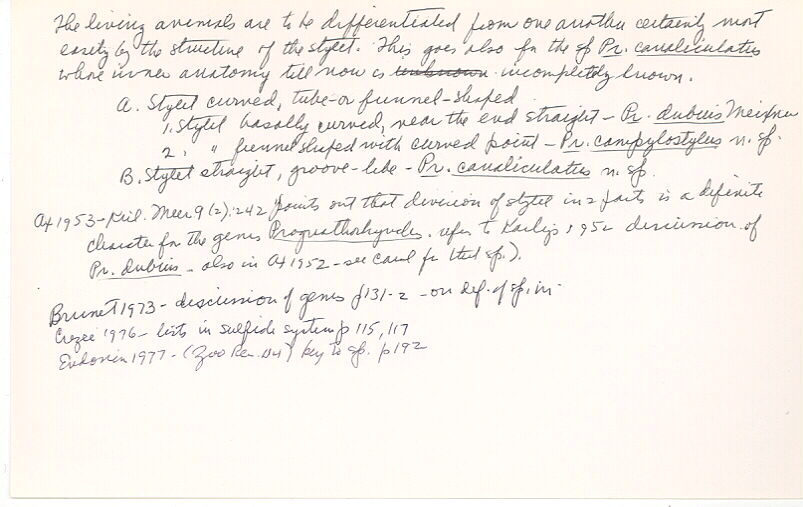 The living animals are to be differentiated from one another certainly most
easily by the structure of the stylet. This goes also for the sp Pr. canaliculatus
whose inner anatomy till now is unknown incompletely known.
A. Stylet curved, tube-or funnel-shaped
1. Stylet basally curved, near the end straight - Pr. dubius Meixner
2. " funnel shaped with curved point - Pr. campylostylus n. sp.
B. Stylet straight, groove-like - Pr. canaliculatus n. sp.
Ax 1953 - Kiel. Meer 9(2):242 points out that division of stylet in 2 parts is a definite
character for the genus Prognathorhynchus. refers to Karling's 1952 discussion of
Pr. dubius - also in Ax 1952 - see card for that sp.).
Brunet 1973 - discussion of genus p131-2 - on def. of sp. in
Crezée 1976 - lists in sulfide system p 115, 117
Evdonin 1977 - (Zoo Rec. 114) key to sp. p192